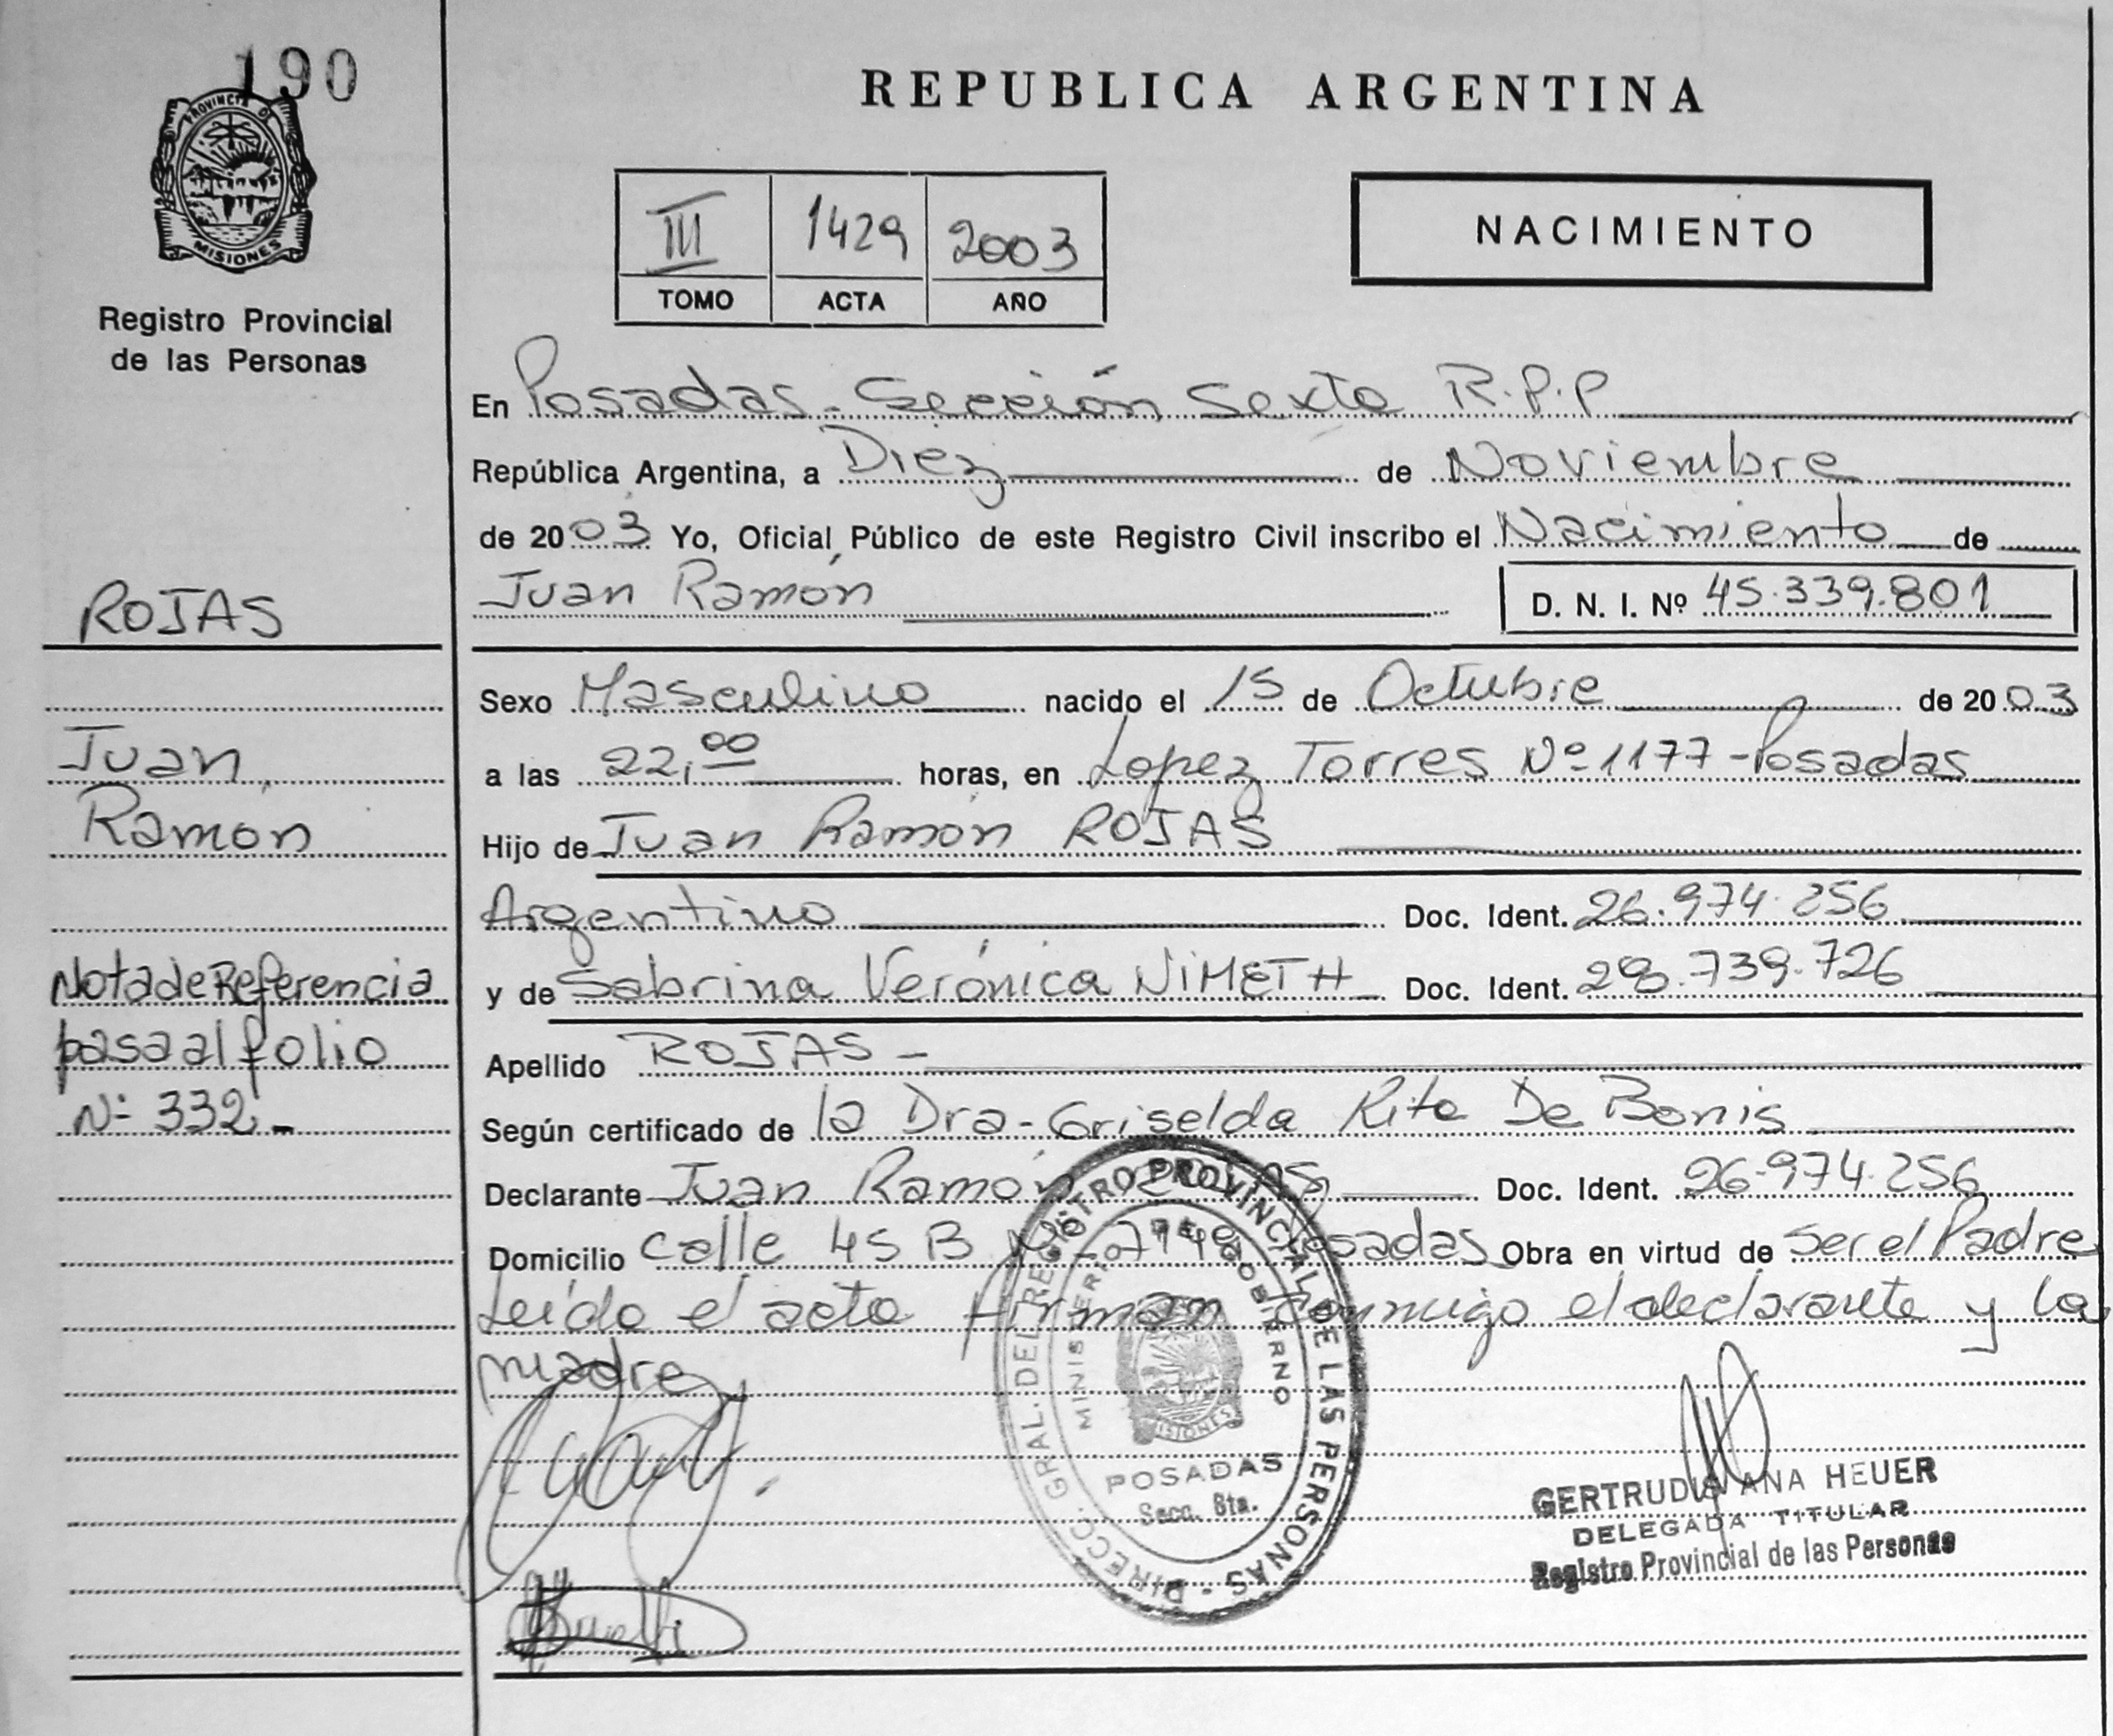 190
PROVINCIA DE
MISIONES
Registro Provincial
de las Personas
ROJAS
Juan
Ramón
Nota de Referencia
pasa al folio
Nº 332.-
REPUBLICA ARGENTINA
III 1429 2003
TOMO ACTA AÑO
NACIMIENTO
En Posadas - Sección Sexta R.P.P
República Argentina, a Diez de Noviembre
de 2003 Yo, Oficial Público de este Registro Civil inscribo el Nacimiento de
Juan Ramón D. N. I. Nº 45.339.801
Sexo Masculino nacido el 15 de Octubre de 2003
a las 22,00 horas, en Lopez Torres Nº 1177 - Posadas
Hijo de Juan Ramón ROJAS
Argentino Doc. Ident. 26.974.256
y de Sabrina Verónica NiMETH Doc. Ident. 28.739.726
Apellido ROJAS -
Según certificado de la Dra - Griselda Rita De Bonis
Declarante Juan Ramón ROJAS Doc. Ident. 26.974.256
Domicilio Calle 45 B Nº Posadas Obra en virtud de Ser el Padre
Leída el acta firman conmigo el declarante y la
madre
DIRECC. GRAL. DEL REGISTRO PROVINCIAL DE LAS PERSONAS -
MINISTERIO DE GOBIERNO
MISIONES
POSADAS
Secc. 6ta.
GERTRUDIS ANA HEUER
DELEGADA TITULAR
Registro Provincial de las Personas